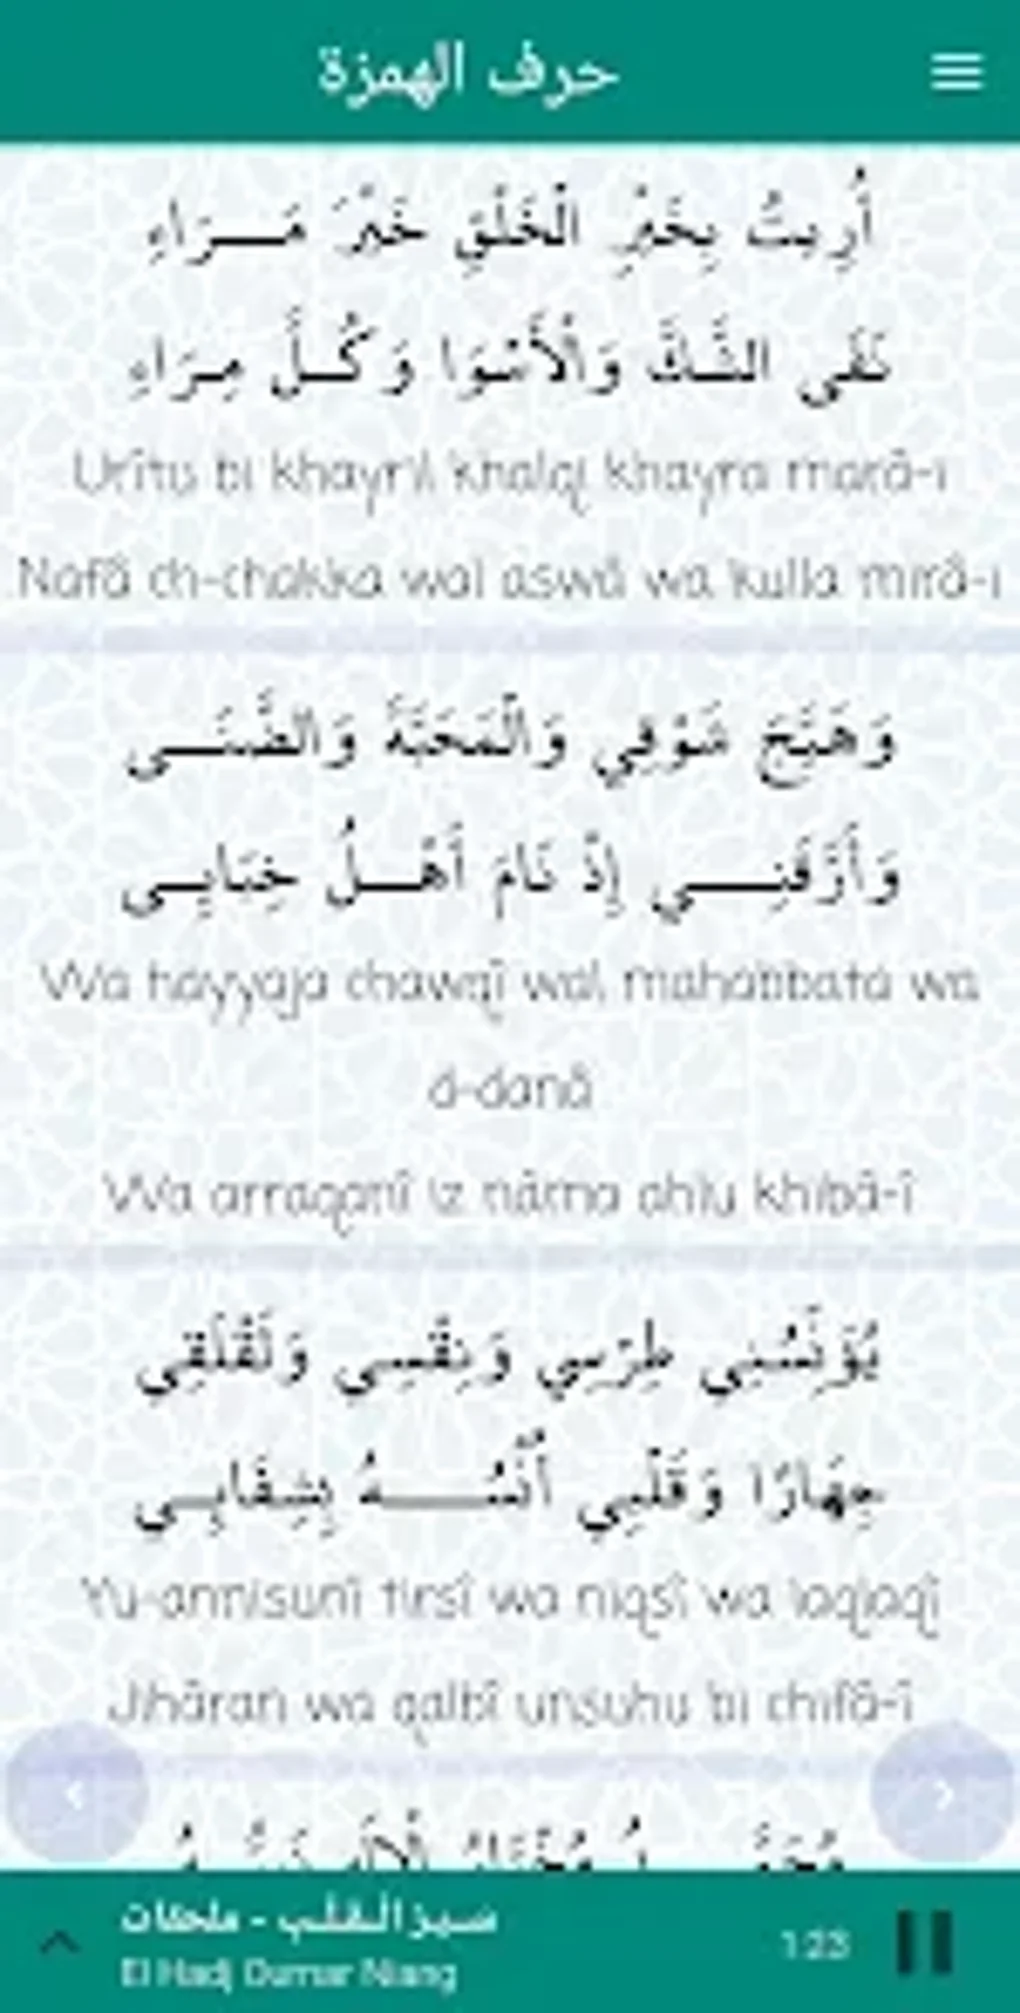 حرف الهمزة
أُرِيتُ بِخَيْرِ الْخَلْقِ خَيْرَ مَــرَاءِ
نَفَى الشَّكَّ وَالْأَسْوَا وَكُــلَّ مِـرَاءِ
Urîtu bi khayril khalqi khayra marâ-i
Nafâ ch-chakka wal aswâ wa kulla mirâ-i
وَهَيَّجَ شَوْقِي وَالْمَحَبَّةَ وَالضَّنَــى
وَأَرَّقَنِــــي إِذْ نَامَ أَهْــلُ خِبَابِــى
Wa hayyaja chawqî wal mahabbata wa
d-danâ
Wa arraqanî iz nâma ahlu khibâ-î
يُؤَنِّسُنِي طِرْسِي وَنِقْسِي وَلَقْلَقِي
جِهَارًا وَقَلْبِي أُنْسُـــــهُ بِشِفَابِــي
Yu-annisunî tirsî wa niqsî wa laqlaqî
Jihâran wa qalbî unsuhu bi chifâ-î
سـيـر الـقـلـب - ملحقات
El Hadj Oumar Niang
1:23